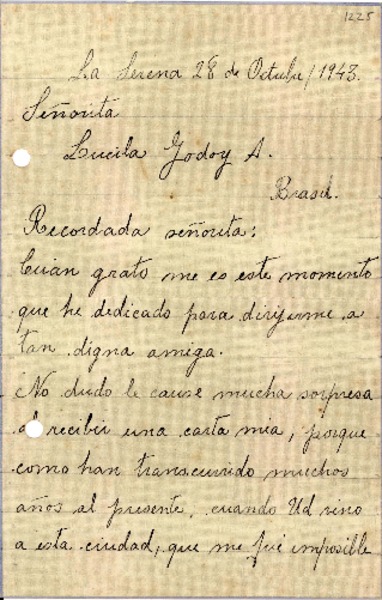 1225
La Serena 28 de Octubre/1943.
Señorita
Lucila Godoy A.
Brasil.
Recordada señorita:
Cuán grato me es este momento
que he dedicado para dirijirme a
tan digna amiga.
No dudo le cause mucha sorpresa
al recibir una carta mia, porque
como han transcurrido muchos
años al presente, cuando Ud vino
a esta ciudad, que me fué imposible